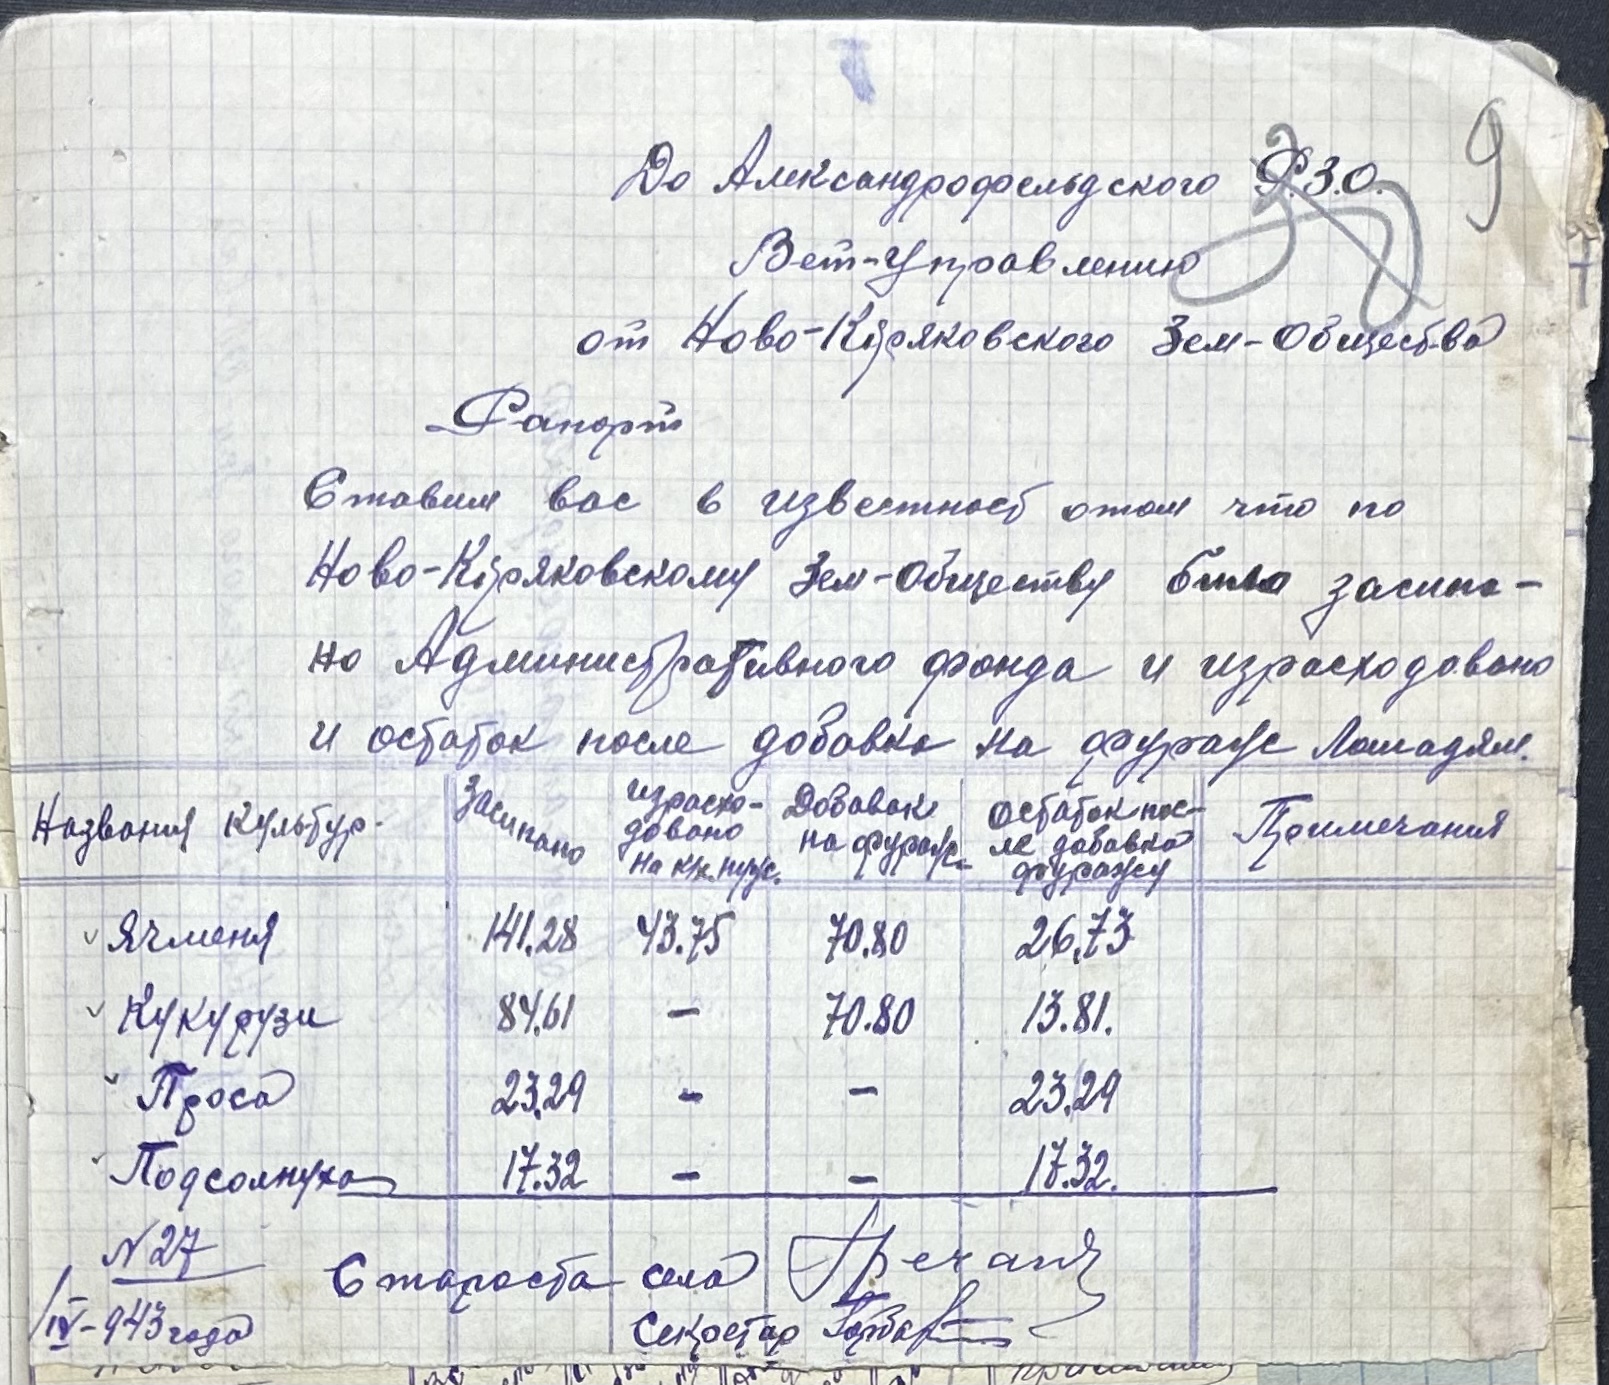 9
До Александрофельдского Р.З.О.
Вет-Управлению
от Ново-Кіряковского Зем-Общества
Рапорт
Ставим вас в известност отом что по
Ново-Кіряковскому Зем-Обществу было засипа-
но Административного фонда и израсходовано
и остаток после добавка на фураж Лошадям.
Названия культур. Засипано израсхо-довано на кн. пуус. Добавок на фураж. Остаток пос-ле добавка фуражу Примечания
Ячменя 141.28 43.75 70.80 26,73
Кукурузи 84.61 – 70.80 13.81.
Проса 23,29 – – 23,29
Подсолнуха 17.32 – – 17.32.
N 27
1/IV-943 года
Староста села Гречаня
Секретар